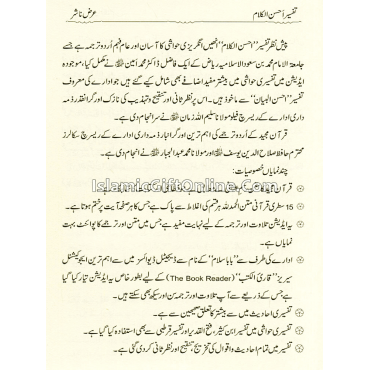 تفسیر احسن الکلام
عرض ناشر
پیش نظر تفسیر "احسن الکلام" انھیں انگریزی حواشی کا آسان اور عام فہم اُردو ترجمہ ہے جسے
جامعۃ الامام محمد بن سعود الاسلامیہ ریاض کے ایک فاضل ڈاکٹر محمد امین ﷾ نے مکمل کیا، موجودہ
ایڈیشن میں تفسیری حواشی میں بیشتر مفید اضافے بھی شامل کیے گئے ہیں جو ادارے کی معروف
تفسیر "احسن البیان" سے ماخوذ ہیں۔ اس پر نظر ثانی اور تنقیح و تہذیب کی نازک اور گرانقدر ذمہ
داری ادارے کے ریسرچ فیلو مولانا سلیم اللہ زمان ﷾ نے سرانجام دی ہے۔
قرآن مجید کے اُردو ترجمے کی اہم ترین اور گرانبار ذمہ داری ادارے کے ریسرچ سکالرز
محترم حافظ صلاح الدین یوسف ﷾ اور مولانا محمد عبدالجبار ﷾ نے انجام دی ہے۔
چند نمایاں خصوصیات:
قرآن
IslamicGiftOnline.Com
15 سطری قرآنی متن الحمد للہ ہر قسم کی اغلاط سے پاک ہے جس کا ہر صفحہ آیت پر ختم ہوتا ہے۔
یہ ایڈیشن تلاوت اور ترجمے کے لیے نہایت مفید ہے جس میں متن اور ترجمے کا پوائنٹ بہت
نمایاں ہے۔
ادارے کی طرف سے "بابا سلام" کے نام سے ڈیجیٹل ڈیوائسز میں سے اہم ترین ایجوکیشنل
سیریز "قاریٔ الکتب" (The Book Reader) کے لیے بطور خاص یہ ایڈیشن تیار کیا گیا
ہے جس کے ذریعے سے آپ تلاوت اور ترجمہ سن اور سیکھ بھی سکتے ہیں۔
تفسیری احادیث میں سے بیشتر کا تعلق صحیحین سے ہے۔
تفسیری حواشی میں تفسیر ابن کثیر، فتح القدیر اور تفسیر قرطبی سے بھی استفادہ کیا گیا ہے۔
تفسیر میں تمام احادیث و اقوال کی تخریج، تنقیح اور نظر ثانی کر دی گئی ہے۔